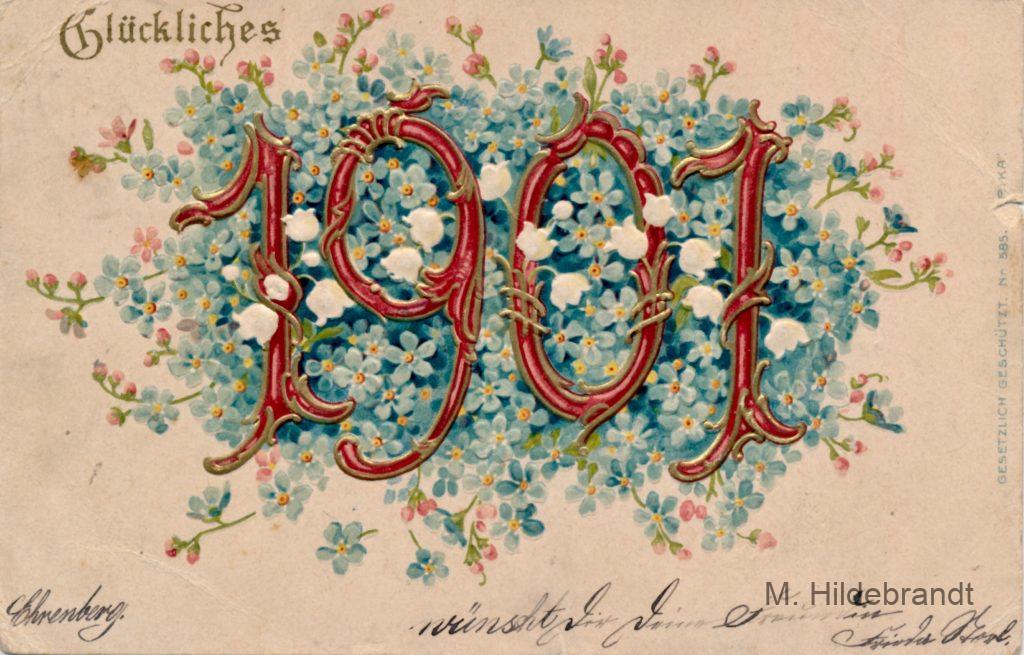 Glückliches
1901
GESETZLICH GESCHÜTZT. Nr 585.
M. Hildebrandt
Ehrenberg.
wünscht Dir Deine Freundin
Frieda